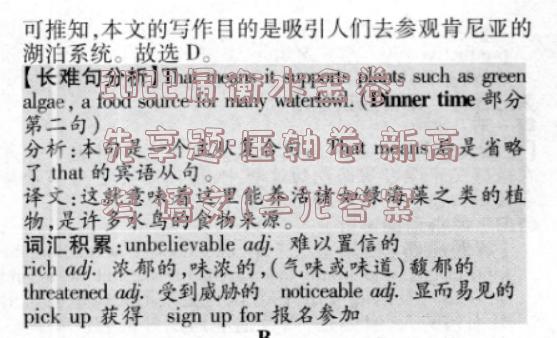 可推知,本文的写作目的是吸引人们去参观肯尼亚的
湖泊系统。故选 D。
【长难句分析】That means it supports plants such as green
algae, a food source for many waterfowl. (Dinner time 部分
第二句)
分析:本句是一个主从复合句。That means 后是省略
了 that 的宾语从句。
译文:这就意味着这里能养活诸如绿海藻之类的植
物,是许多水鸟的食物来源。
词汇积累:unbelievable adj. 难以置信的
rich adj. 浓郁的,味浓的,(气味或味道)馥郁的
threatened adj. 受到威胁的 noticeable adj. 显而易见的
pick up 获得 sign up for 报名参加
B
2022届衡水金卷
先享题 压轴卷 新高
考 语文(一)答案